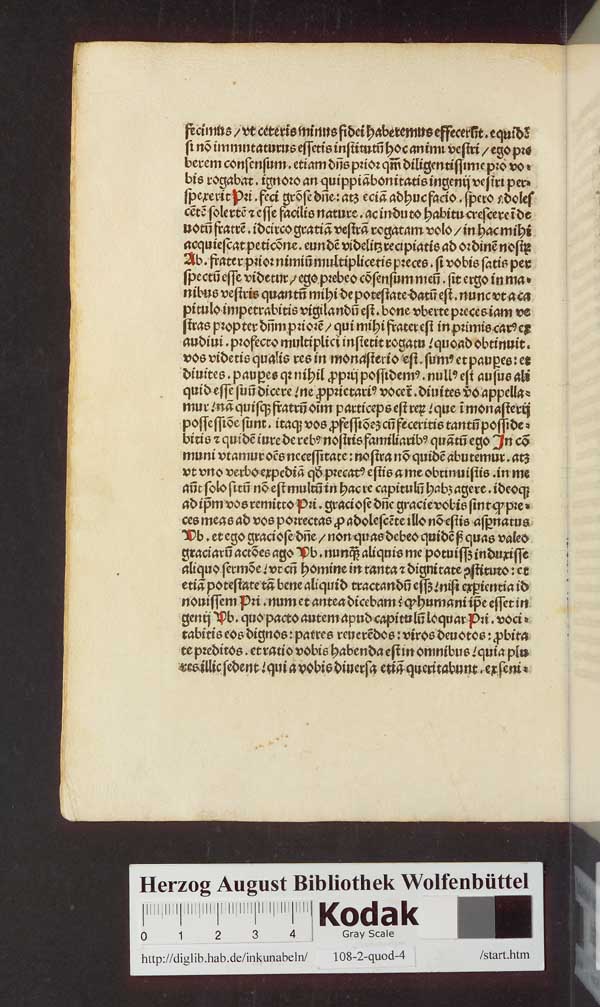 fecimus / vt ceteris minus fidei haberemus effecerūt. equidē
si nō immutaturus essetis institutū hoc animi vestri / ego pre
berem consensum. etiam dn̄s prior qm̄ diligentissime pro vo⸗
bis rogabat. ignoro an quippiā bonitatis ingenij vestri per⸗
spexerit Pri. feci grōse dn̄e: atꝫ eciā adhuc facio. spero adoles
cētē solertē ⁊ esse facilis nature. ac induto habitu crescere ī de
uotū fratrē. idcirco gratiā vestrā rogatam volo / in hac mihi
acquiescat peticōne. eundē videlicꝫ recipiatis ad ordinē nostꝝ
Ab. frater prior nimiū multiplicetis preces. si vobis satis per
spectū esse videtur / ego prebeo cōsensum meū. sit ergo in ma⸗
nibus vestris quantū mihi de potestate datū est. nunc vt a ca
pitulo impetrabitis vigilandū est. bone vberte preces iam ve
stras propter dn̄m priorē / qui mihi frater est in primis carꝰ ex
audiui. profecto multiplici institit rogatu / quoad obtinuit.
vos videtis qualis res in monasterio est. sumꝰ et paupes: et
diuites. paupes qꝛ nihil ꝓprij possidemꝰ. nullꝰ est ausus ali
quid esse suū dicere / ne ꝓprietariꝰ vocet᷑. diuites vo appella⸗
mur / nā quisqꝫ fratrū oīm particeps est reꝝ / que ī monasterij
possessiōe sunt. itaqꝫ vos ꝓfessiōeꝫ cū feceritis tantū posside⸗
bitis ⁊ quidē iure de rebꝰ nostris familiaribꝰ quātū ego In cō
muni vtamur oēs necessitate: nostra nō quidē abutemur. atꝫ
vt vno verbo expediā qd̄ precatꝰ estis a me obtinuistis. in me
aūt solo sitū nō est multū in hac re capitulū habꝫ agere. ideoqꝫ
ad ip̄m vos remitto Pri. graciose dn̄e gracie vobis sint qꝫ pre⸗
ces meas ad vos porrectas ꝓ adolescēte illo nō estis asp̄natus
Vb. et ego graciose dn̄e / non quas debeo quidē sꝫ quas valeo
graciarū actōes ago Vb. nunqꝫ̄ aliquis me potuissꝫ induxisse
aliquo sermōe / vt cū homine in tanta ⁊ dignitate ꝯstituto: et
etiā potestate tā bene aliquid tractandū essꝫ / nisi exp̄ientia id
nouissem Pri. num et antea dicebam / qꝫ humani ip̄e esset in
genij Vb. quo pacto autem apud capitulū loquar Pri. voci⸗
tabitis eos dignos: patres reuerēdos: viros deuotos: ꝓbita
te preditos. et ratio vobis habenda est in omnibus / quia plu
res illic sedent / qui a vobis diuersa etiā queritabunt. ex seni⸗
Herzog August Bibliothek Wolfenbüttel
0 1 2 3 4
Kodak
Gray Scale
http://diglib.hab.de/inkunabeln/ 108-2-quod-4 /start.htm